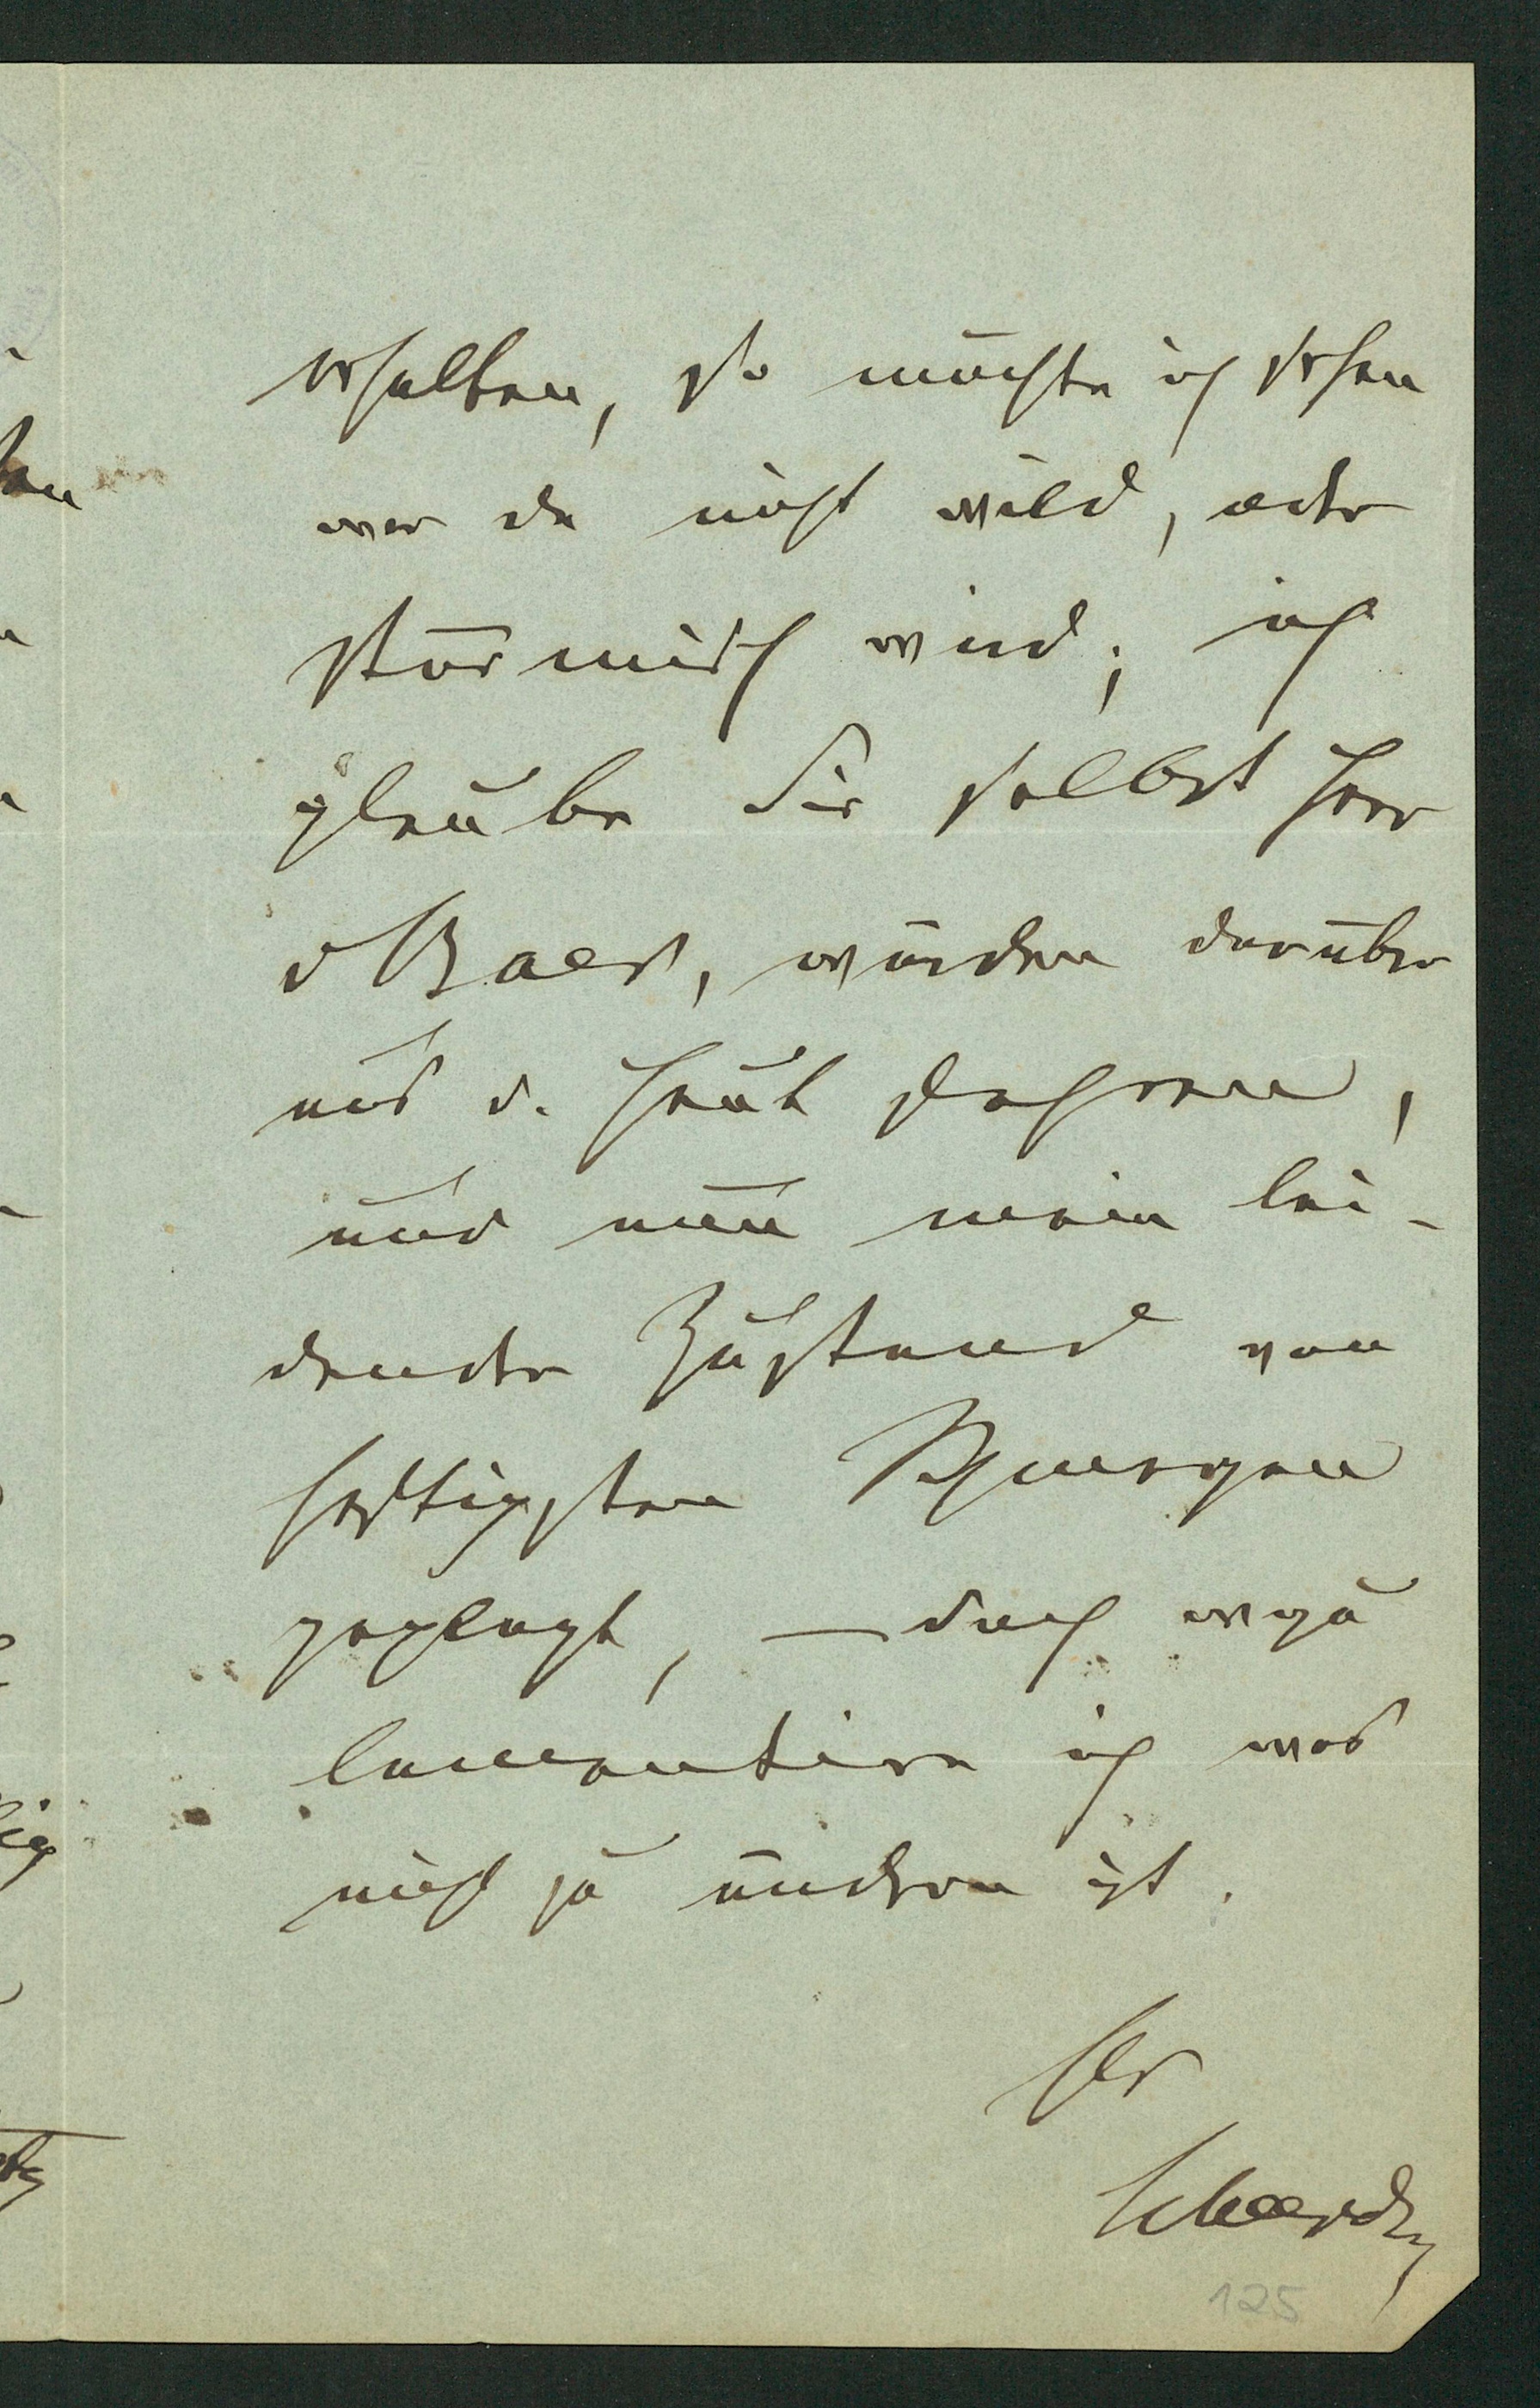 erhalten, so möchte ich sehen
wer da nicht wild, oder
störrisch wird; ich
glaube Sie selbst Herr
v Baer, würden darüber
aus d. Haut fahren,
und nun mein lei-
dender Zustand von
heftigsten Schmerzen
geplagt, – doch wozu
lamentire ich was
nicht zu ändern ist.
Ihr
125